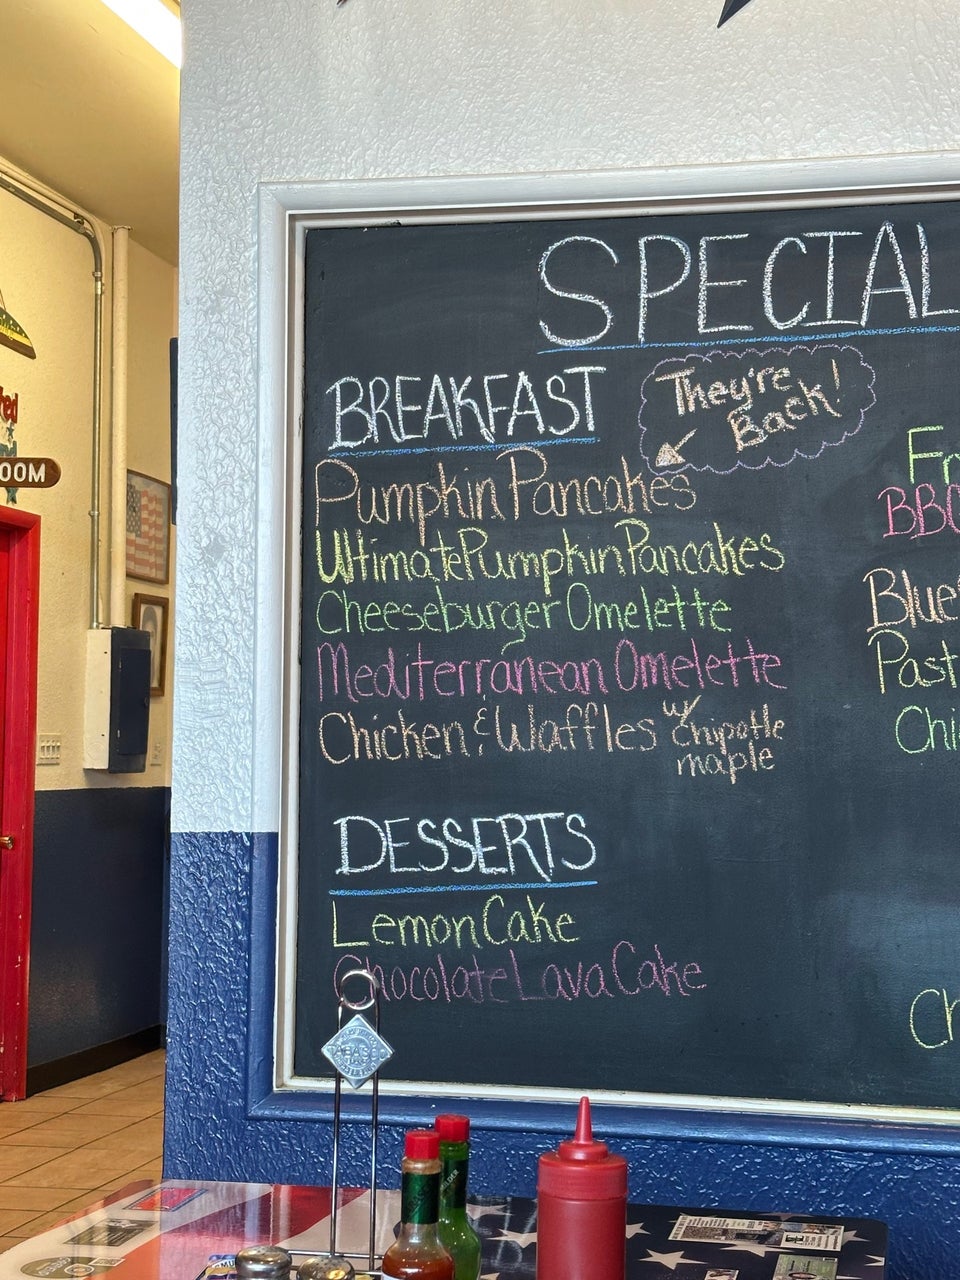 SPECIAL
BREAKFAST
They're
Back!
Pumpkin Pancakes
Ultimate Pumpkin Pancakes
Cheeseburger Omelette
Mediterranean Omelette
Chicken & Waffles w/
Chipotle
maple
DESSERTS
Lemon Cake
Chocolate Lava Cake
Fr
BBQ
Blue
Past
Chi
Ch
OOM